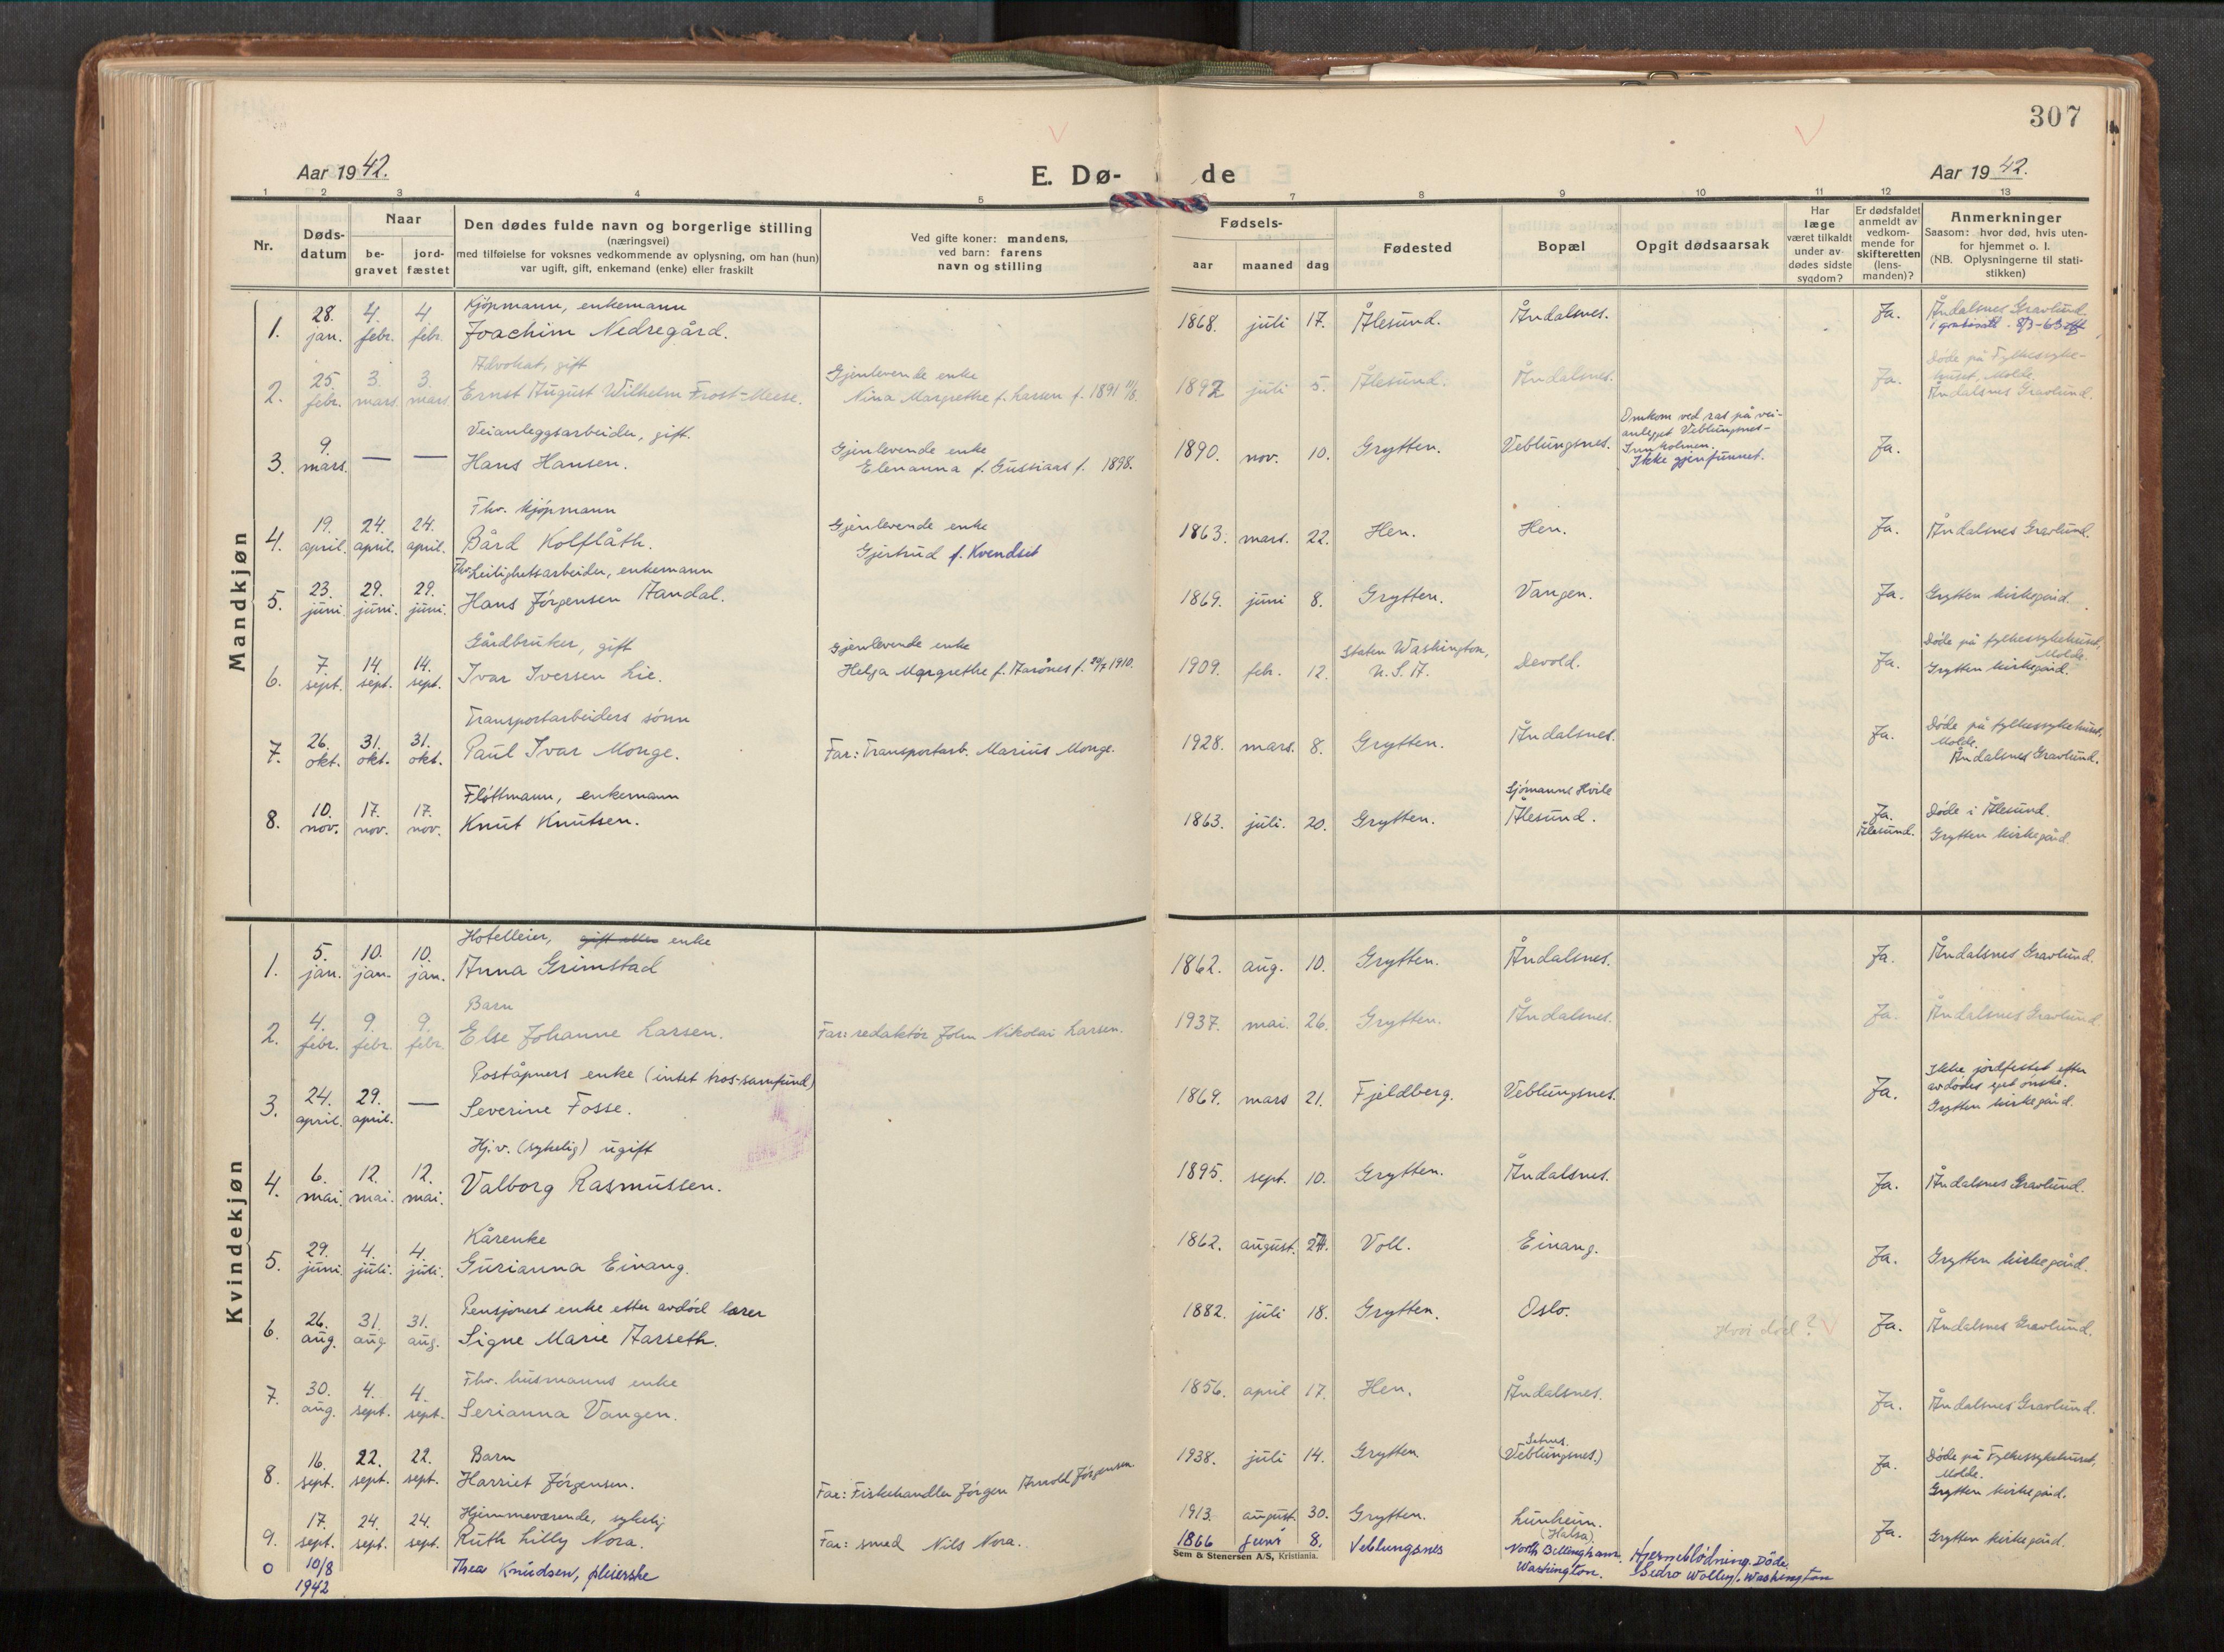 307
Aar 1942.
E. Dø- de
Aar 1942.
1 2 3 4 5 7 8 9 10 11 12 13
Nr.
Døds-
datum
Naar
be-
gravet
jord-
fæstet
Den dødes fulde navn og borgerlige stilling
(næringsvei)
med tilføielse for voksnes vedkommende av oplysning, om han (hun)
var ugift, gift, enkemand (enke) eller fraskilt
Ved gifte koner: mandens,
ved barn: farens
navn og stilling
Fødsels-
aar maaned dag
Fødested
Bopæl
Opgit dødsaarsak
Har
læge
været tilkaldt
under av-
dødes sidste
sygdom?
Er dødsfaldet
anmeldt av
vedkom-
mende for
skifteretten
(lens-
manden)?
Anmerkninger
Saasom: hvor død, hvis uten-
for hjemmet o. l.
(NB. Oplysningerne til stati-
stikken)
Mandkjøn
Kjøpmann, enkemann
1. 28. jan. 4. febr. 4. febr. Joachim Nedregård. 1868. juli 17. Ålesund. Åndalsnes. Ja. Åndalsnes Gravlund.
Advokat, gift
2. 25. febr. 3. mars 3. mars Ernst August Wilhelm Frost-Meese. Gjenlevende enke
Nina Margrethe f. Larsen f. 1891 11/8. 1892 juli 5. Ålesund. Åndalsnes. Ja. Døde på Fylkessyke-
huset, Molde.
Åndalsnes Gravlund.
Veianleggsarbeider, gift.
3. 9. mars. — — Hans Hansen. Gjenlevende enke
Elenanna f. Gussiaas f. 1898. 1890. nov. 10. Grytten. Veblungsnes. Omkom ved ras på vei-
anlegget Veblungsnes-
Innholmen.
Ikke gjenfunnet. Ja.
Fhv. kjøpmann
4. 19. april. 24. april. 24. april. Bård Kolflåth. Gjenlevende enke
Gjertrud f. Kvendset 1863. mars. 22. Hen. Hen. Ja. Åndalsnes Gravlund.
Fhv. Leilighetsarbeider, enkemann
5. 23. juni. 29. juni. 29. juni. Hans Jørgensen Aandal. 1869. juni 8. Grytten. Vangen. Ja. Grytten kirkegård.
Gårdbruker, gift
6. 7. sept. 14. sept. 14. sept. Ivar Iversen Lie. Gjenlevende enke
Helga Margrethe f. Aarønes f. 20/7 1910. 1909. feb. 12. Staten Washington,
U. S. A. Devold. Ja. Døde på fylkessykehuset,
Molde.
Grytten kirkegård.
Transportarbeiders sønn
7. 26. okt. 31. okt. 31. okt. Paul Ivar Monge. Far: Transportarb. Marius Monge. 1928. mars. 8. Grytten. Åndalsnes. Ja. Døde på fylkessykehuset,
Molde.
Åndalsnes Gravlund.
Fløttmann, enkemann
8. 10. nov. 17. nov. 17. nov. Knut Knutsen. 1863. juli. 20. Grytten. Sjømanns Hvile
Ålesund. Ja.
Ålesund. Døde i Ålesund.
Grytten kirkegård.
Kvindekjøn
Hotelleier, gift eller enke
1. 5. jan. 10. jan. 10. jan. Anna Grimstad 1862. aug. 10. Grytten. Åndalsnes. Ja. Åndalsnes Gravlund.
Barn
2. 4. febr. 9. febr. 9. febr. Else Johanne Larsen. Far: redaktør John Nikolai Larsen. 1937. mai. 26. Grytten. Åndalsnes. Ja. Åndalsnes Gravlund.
Poståpners enke (intet tros-samfund)
3. 24. april. 29. april. — Severine Fosse. 1869. mars 21. Fjeldberg. Veblungsnes. Ja. Ikke jordfestet efter
avdødes eget ønske.
Grytten kirkegård.
Hj.v. (sykelig) ugift
4. 6. mai. 12. mai. 12. mai. Valborg Rasmussen. 1895. sept. 10. Grytten. Åndalsnes. Ja. Åndalsnes Gravlund.
Kårenke
5. 29. juni. 4. juli. 4. juli. Gurianna Einang. 1862. august. 24. Voll. Einang. Ja. Grytten kirkegård.
Pensjonert enke etter avdød lærer
6. 26. aug. 31. aug. 31. aug. Signe Marie Aarseth. 1882. juli 18. Grytten. Oslo. Hvor død? Ja. Åndalsnes Gravlund.
Fhv. husmanns enke
7. 30. aug. 4. sept. 4. sept. Serianna Vangen. 1856. april 17. Hen. Åndalsnes. Ja. Åndalsnes Gravlund.
Barn
8. 16. sept. 22. sept. 22. sept. Harriet Jørgensen. Far: Fiskehandler Jørgen Arnold Jørgensen. 1938. juli 14. Grytten. Setnes.
(Veblungsnes.) Ja. Døde på Fylkessykehuset,
Molde.
Grytten kirkegård.
Hjemmeværende, sykelig
9. 17. sept. 24. sept. 24. sept. Ruth Lilly Nora. Far: smed Nils Nora. 1913. august. 30. Grytten. Lunheim.
(Halsa). Ja. Grytten kirkegård.
0 10/8 1942 Thea Knudsen, pleierske 1866 juni 8. Veblungsnes North Bellingham.
Washington. Hjerneblødning. Døde
Sedro Wolley, Washington
Sem & Stenersen A/S, Kristiania.